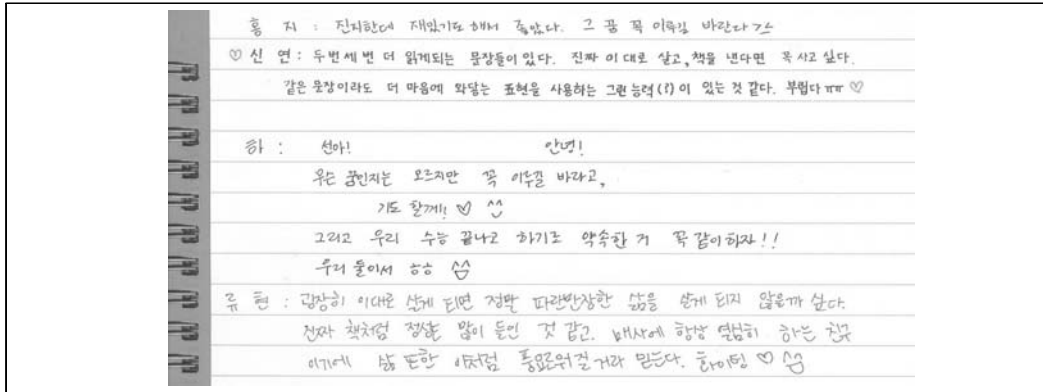 홍 지 : 진지한데 재밌기도 해서 좋았다. 그 꿈 꼭 이루길 바란다 ㄱㅅ
♡ 신 연 : 두번 세 번 더 읽게되는 문장들이 있다. 진짜 이대로 살고, 책을 낸다면 꼭 사고 싶다.
같은 문장이라도 더 마음에 와닿는 표현을 사용하는 그런 능력(?)이 있는 것 같다. 부럽다 ㅠㅠ ♡
하 : 선아! 안녕!
무슨 꿈인지는 모르지만 꼭 이루길 바라고,
기도 할게!! ♡ ^^
그리고 우리 수능 끝나고 하기로 약속한 거 꼭 같이 하자!!
우리 둘이서 ㅎㅎ
류 현 : 굉장히 이대로 살게 되면 정말 파란만장한 삶을 살게 되지 않을까 싶다.
진짜 책처럼 정성을 많이 들인 것 같고. 매사에 항상 열심히 하는 친구
이기에 삶 또한 이처럼 풍요로워질 거라 믿는다. 화이팅 ♡